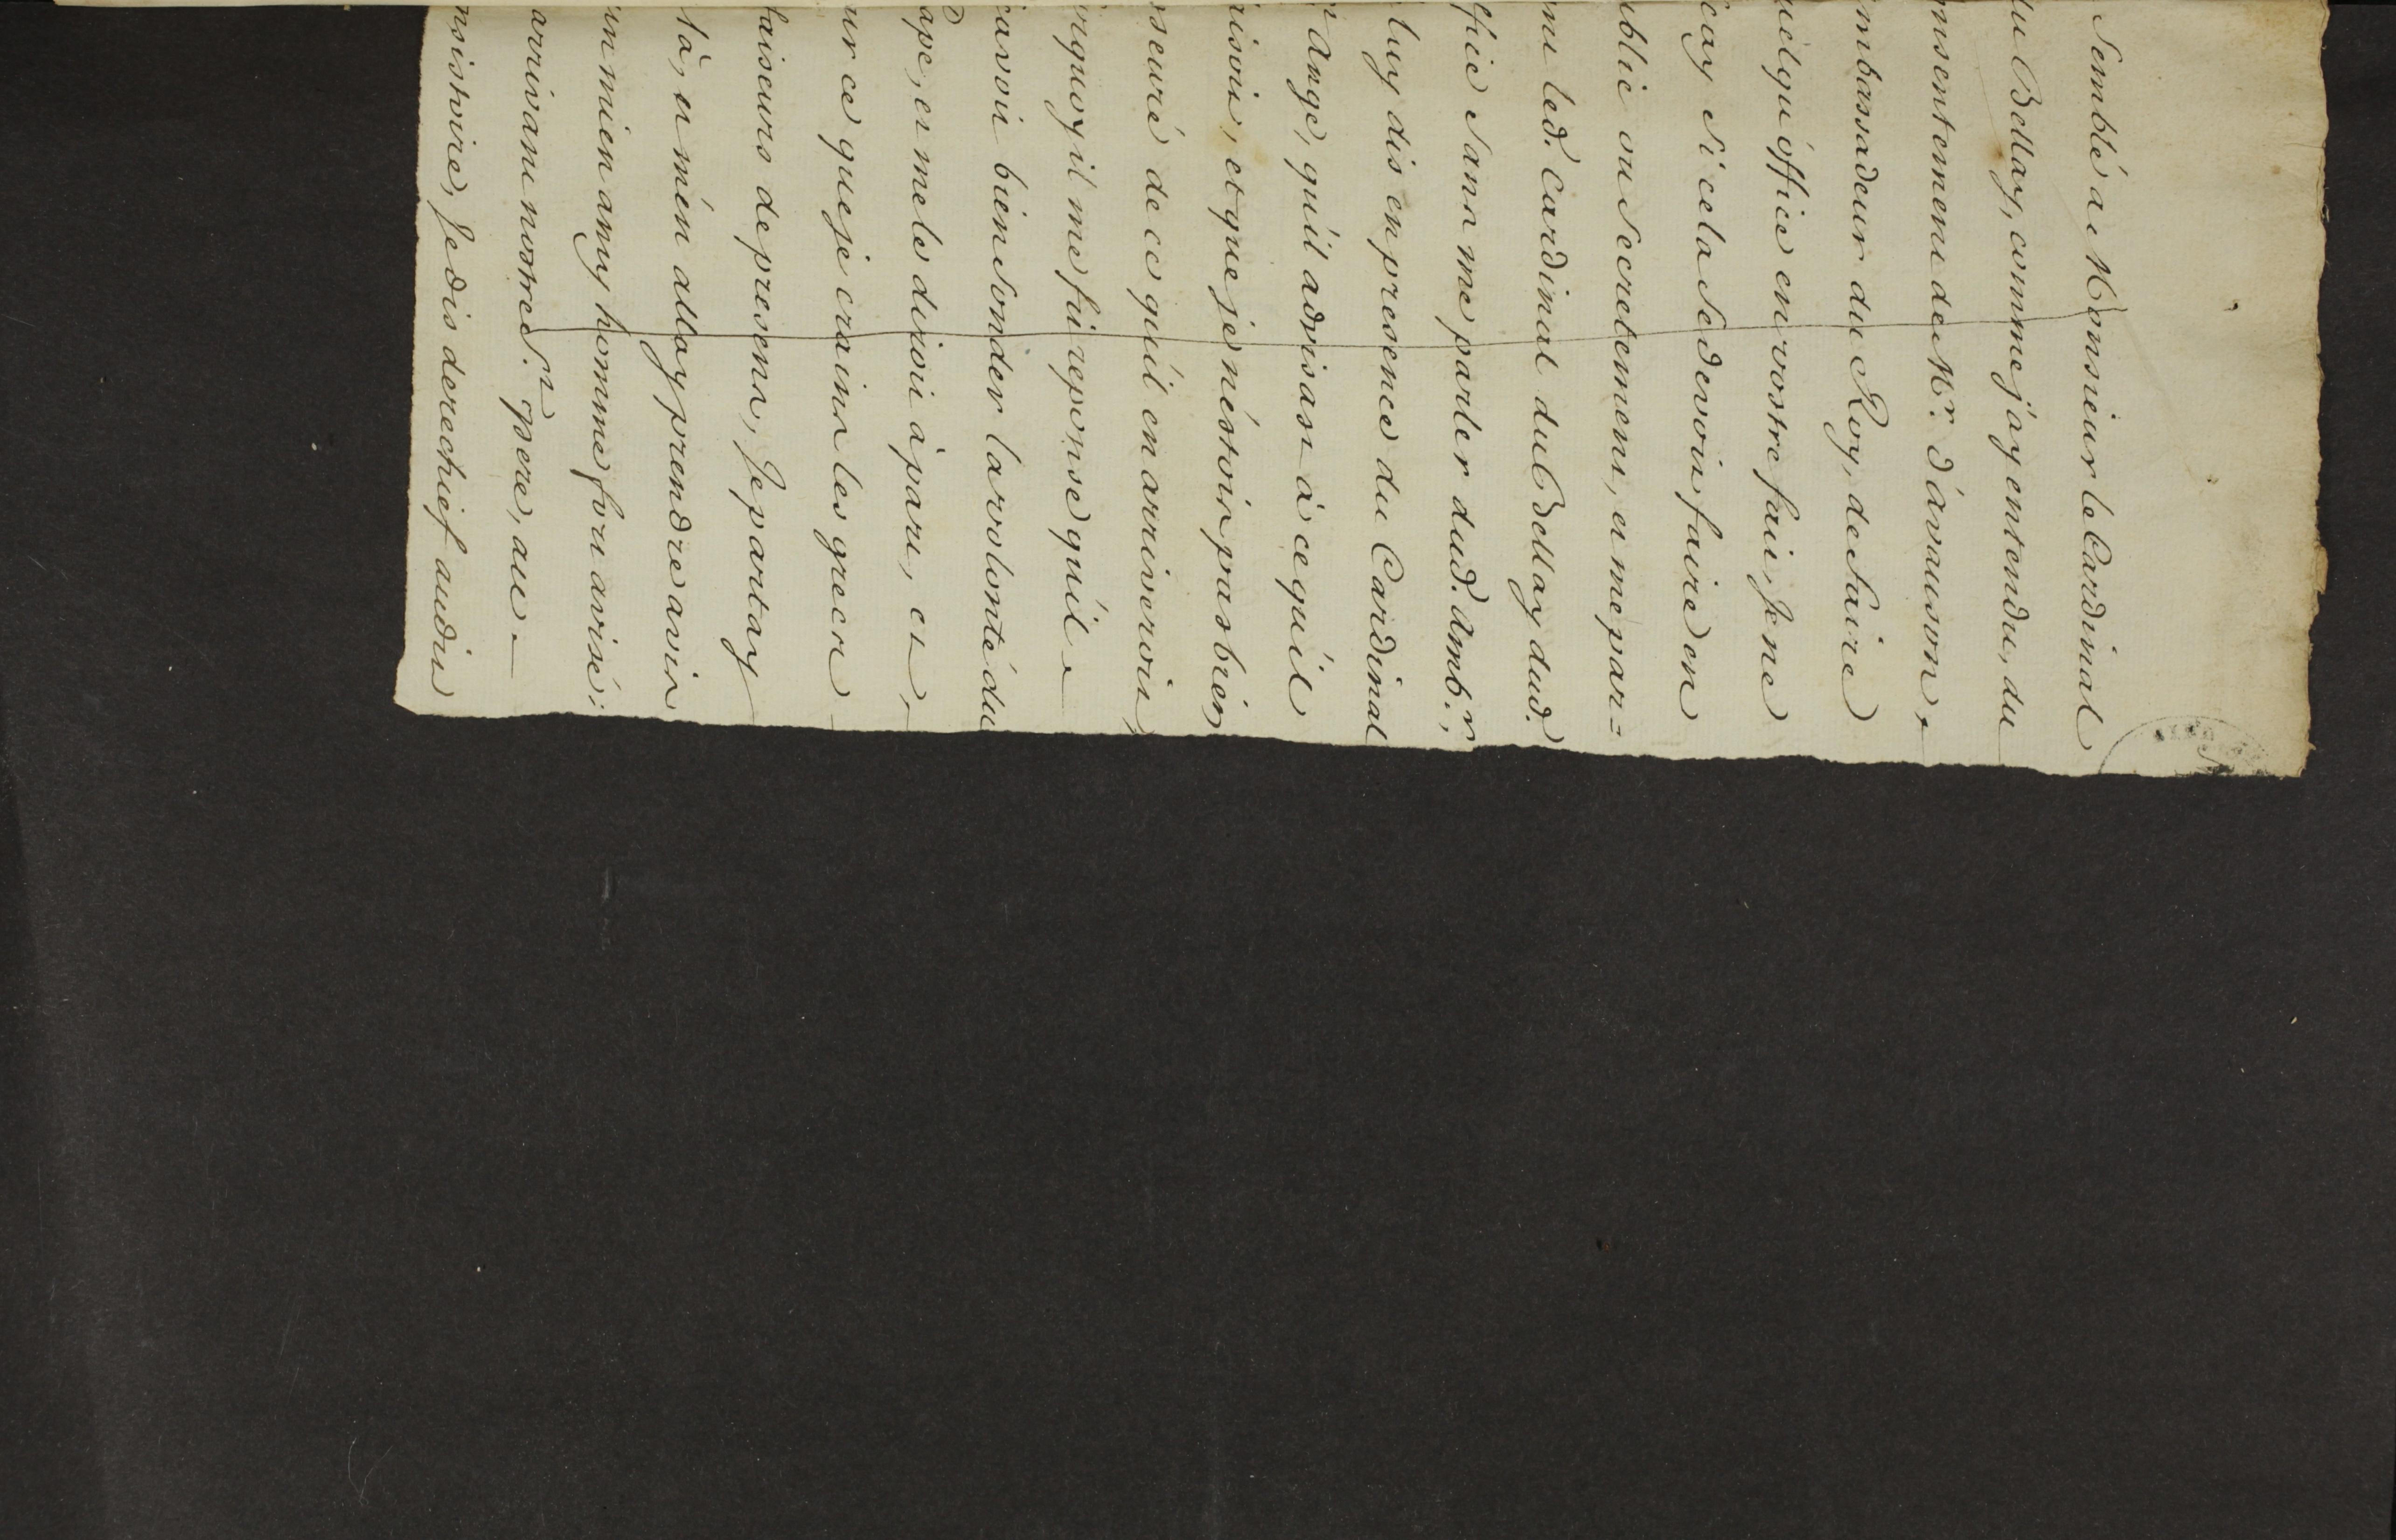 Semblé a Monsieur le Cardinal
du Bellay, comme j'ay entendu, du
nsentement de Mr. d'avanson,
mbassadeur du Roy, de faire
uelqu'office en vostre fait, Je ne
cay si cela se devoit faire en
ublic ou secretement, et me par-
nt led. Cardinal du Bellay dud.
ffice sans me parler dud. Ambr.,
luy dis en presence du Cardinal
Ange, qu'il advisast à ce qu'il
isoit, et que je n'éstois pas bién
sseuré de ce qu'il en arriveroit,
rquoy il me fit reponse qu'il
cavoit bien sonder la volonté du
ape, et me le diroit à part, et
ur ce que je crains les grecs
faiseurs de presens, Je partay
là, et m'én allay prendre avis
'un mien amy homme fort avisé:
arrivant nostre St. pere, au
nsistoire, Je dis derechief audit